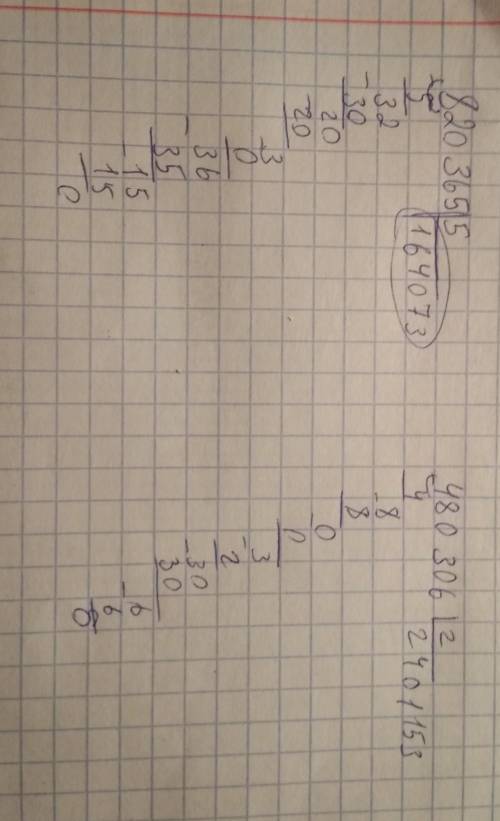 820 365 5
- 5 164073
32
- 30
20
- 20
3
- 0
36
- 35
15
- 15
0
480 306 2
- 4 2401153
8
- 8
0
- 0
3
- 2
30
- 30
6
- 6
0